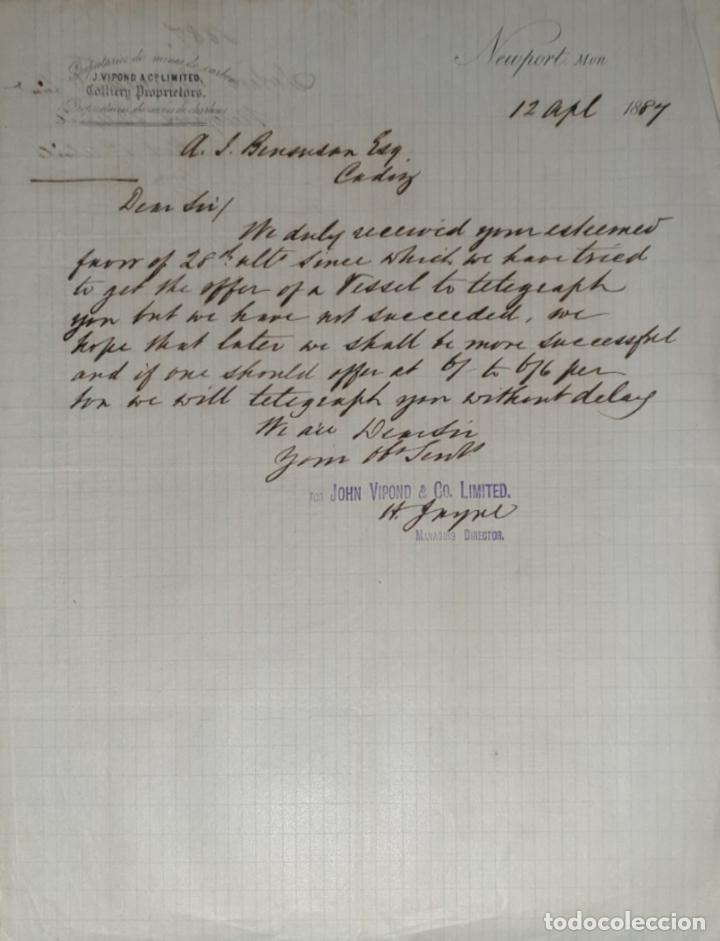 Propietarios de minas de carbon
J. VIPOND & Co LIMITED.
Colliery Proprietors.
Propriétaires de mines de charbons
Newport, Mon
12 Apl 1887
A. J. Bensusan Esq
Cadiz
Dear Sir/
We duly received your esteemed
favor of 28th ulto since which we have tried
to get the offer of a Vessel to telegraph
you but we have not succeeded, we
hope that later we shall be more successful
and if one should offer at 6/ to 6/6 per
ton we will telegraph you without delay
We are Dear Sir
Your Obt Servts
FOR JOHN VIPOND & CO. LIMITED.
H. Jayne
MANAGING DIRECTOR.
todocoleccion